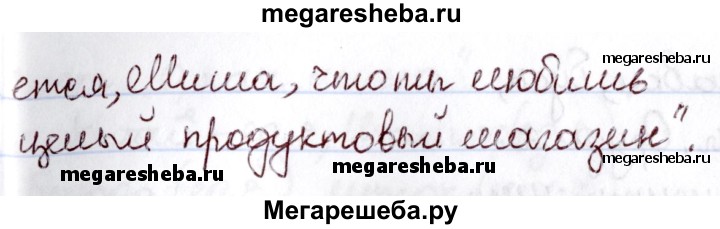 megaresheba.ru
ется, Миша, что ты любишь
megaresheba.ru
megaresheba.ru
целый продуктовый магазин".
megaresheba.ru
megaresheba.ru
Мегарешеба.ру